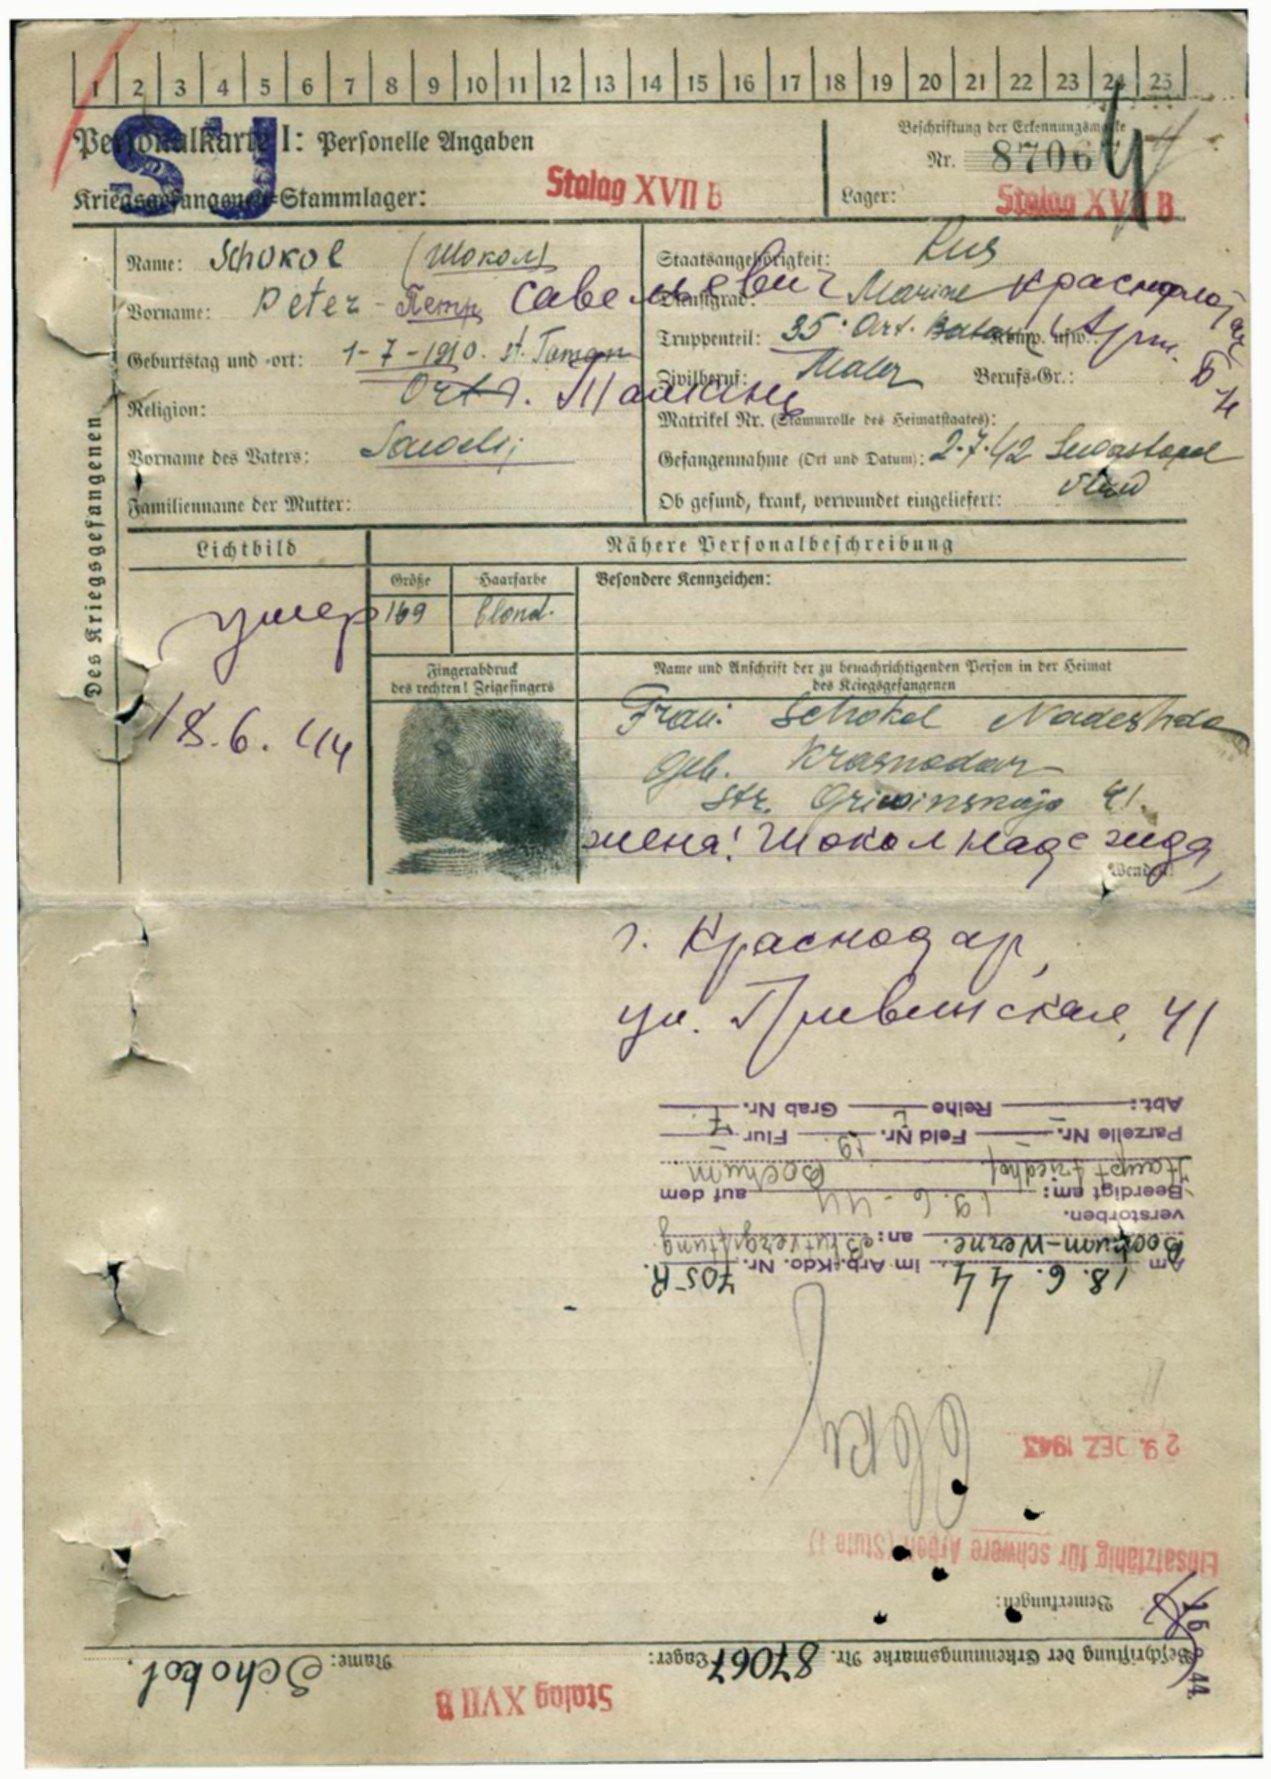 1 2 3 4 5 6 7 8 9 10 11 12 13 14 15 16 17 18 19 20 21 22 23 24 25
SU
Personalkarte I: Personelle Angaben
Kriegsgefangenen-Stammlager: Stalag XVII B
Beschriftung der Erkennungsmarke
Nr. 87067
Lager: Stalag XVII B
Des Kriegsgefangenen
Name: Schokol (Шокол)
Vorname: Peter - Петр Савельевич
Geburtstag und -ort: 1-7-1910. st. Taman
Ort г. Тамань
Religion:
Vorname des Vaters: Saweli
Familienname der Mutter:
Staatsangehörigkeit: Rus
Dienstgrad: Marine Краснофлот
Truppenteil: 35. Art. Komp. usw.:
Zivilberuf: Maler Berufs-Gr.:
Matrikel Nr. (Stammrolle des Heimatstaates):
Gefangennahme (Ort und Datum): 2.7.42 Sewastopol
Ob gesund, krank, verwundet eingeliefert:
Lichtbild
умер
18.6.44
Nähere Personalbeschreibung
Größe Haarfarbe Besondere Kennzeichen:
169 blond.
Fingerabdruck
des rechten! Zeigefingers
Name und Anschrift der zu benachrichtigenden Person in der Heimat
des Kriegsgefangenen
Frau: Schokol Nadeshda
Geb. Krasnodar
Str. Griwinskaja 41.
жена! Шокол Надежда,
Wenden!
г. Краснодар,
ул. Гривинская, 41
Beschriftung der Erkennungsmarke Nr. 87067 Lager: Stalag XVII B Name: Schokol.
Bemerkungen:
Einsatzfähig für schwere Arbeit (Stufe 1)
29. DEZ. 1943
Am 18.6.44 im Arb.-Kdo. Nr. 705 R.
Bochum-Werne. an: Blutvergiftung
verstorben.
Beerdigt am: 19.6-44 auf dem
Hauptfriedhof Bochum
Parzelle Nr. — Feld Nr. 19 Flur 7
Abt: Reihe Grab Nr.